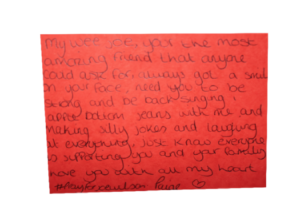 my you're the most
amazing friend that anyone
could ask for. always got a smile
on your face, need you to be
strong and be back singing
apple bottom jeans with me and
making silly jokes and laughing
at everything, just know everyone
is supporting you and your family
love you with all my heart
♡